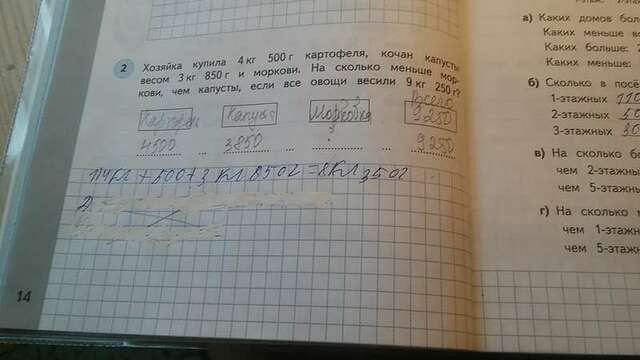 2 Хозяйка купила 4 кг 500 г картофеля, кочан капусты
весом 3 кг 850 г и моркови. На сколько меньше мор-
кови, чем капусты, если все овощи весили 9 кг 250 г?
Капуста Морковь Всего
9250
4500 ... 3850 ... ? ... 9250
1) 4кг 500г + 3 кг 850г = 8кг 350г
2)
14
а) Каких домов бол
Каких меньше вс
Каких больше:
Каких меньше:
б) Сколько в посё
1-этажных
2-этажных
3-этажных
в) На сколько бо
чем 2-этажны
чем 5-этажн
г) На сколько
чем 1-этажн
чем 5-этаж